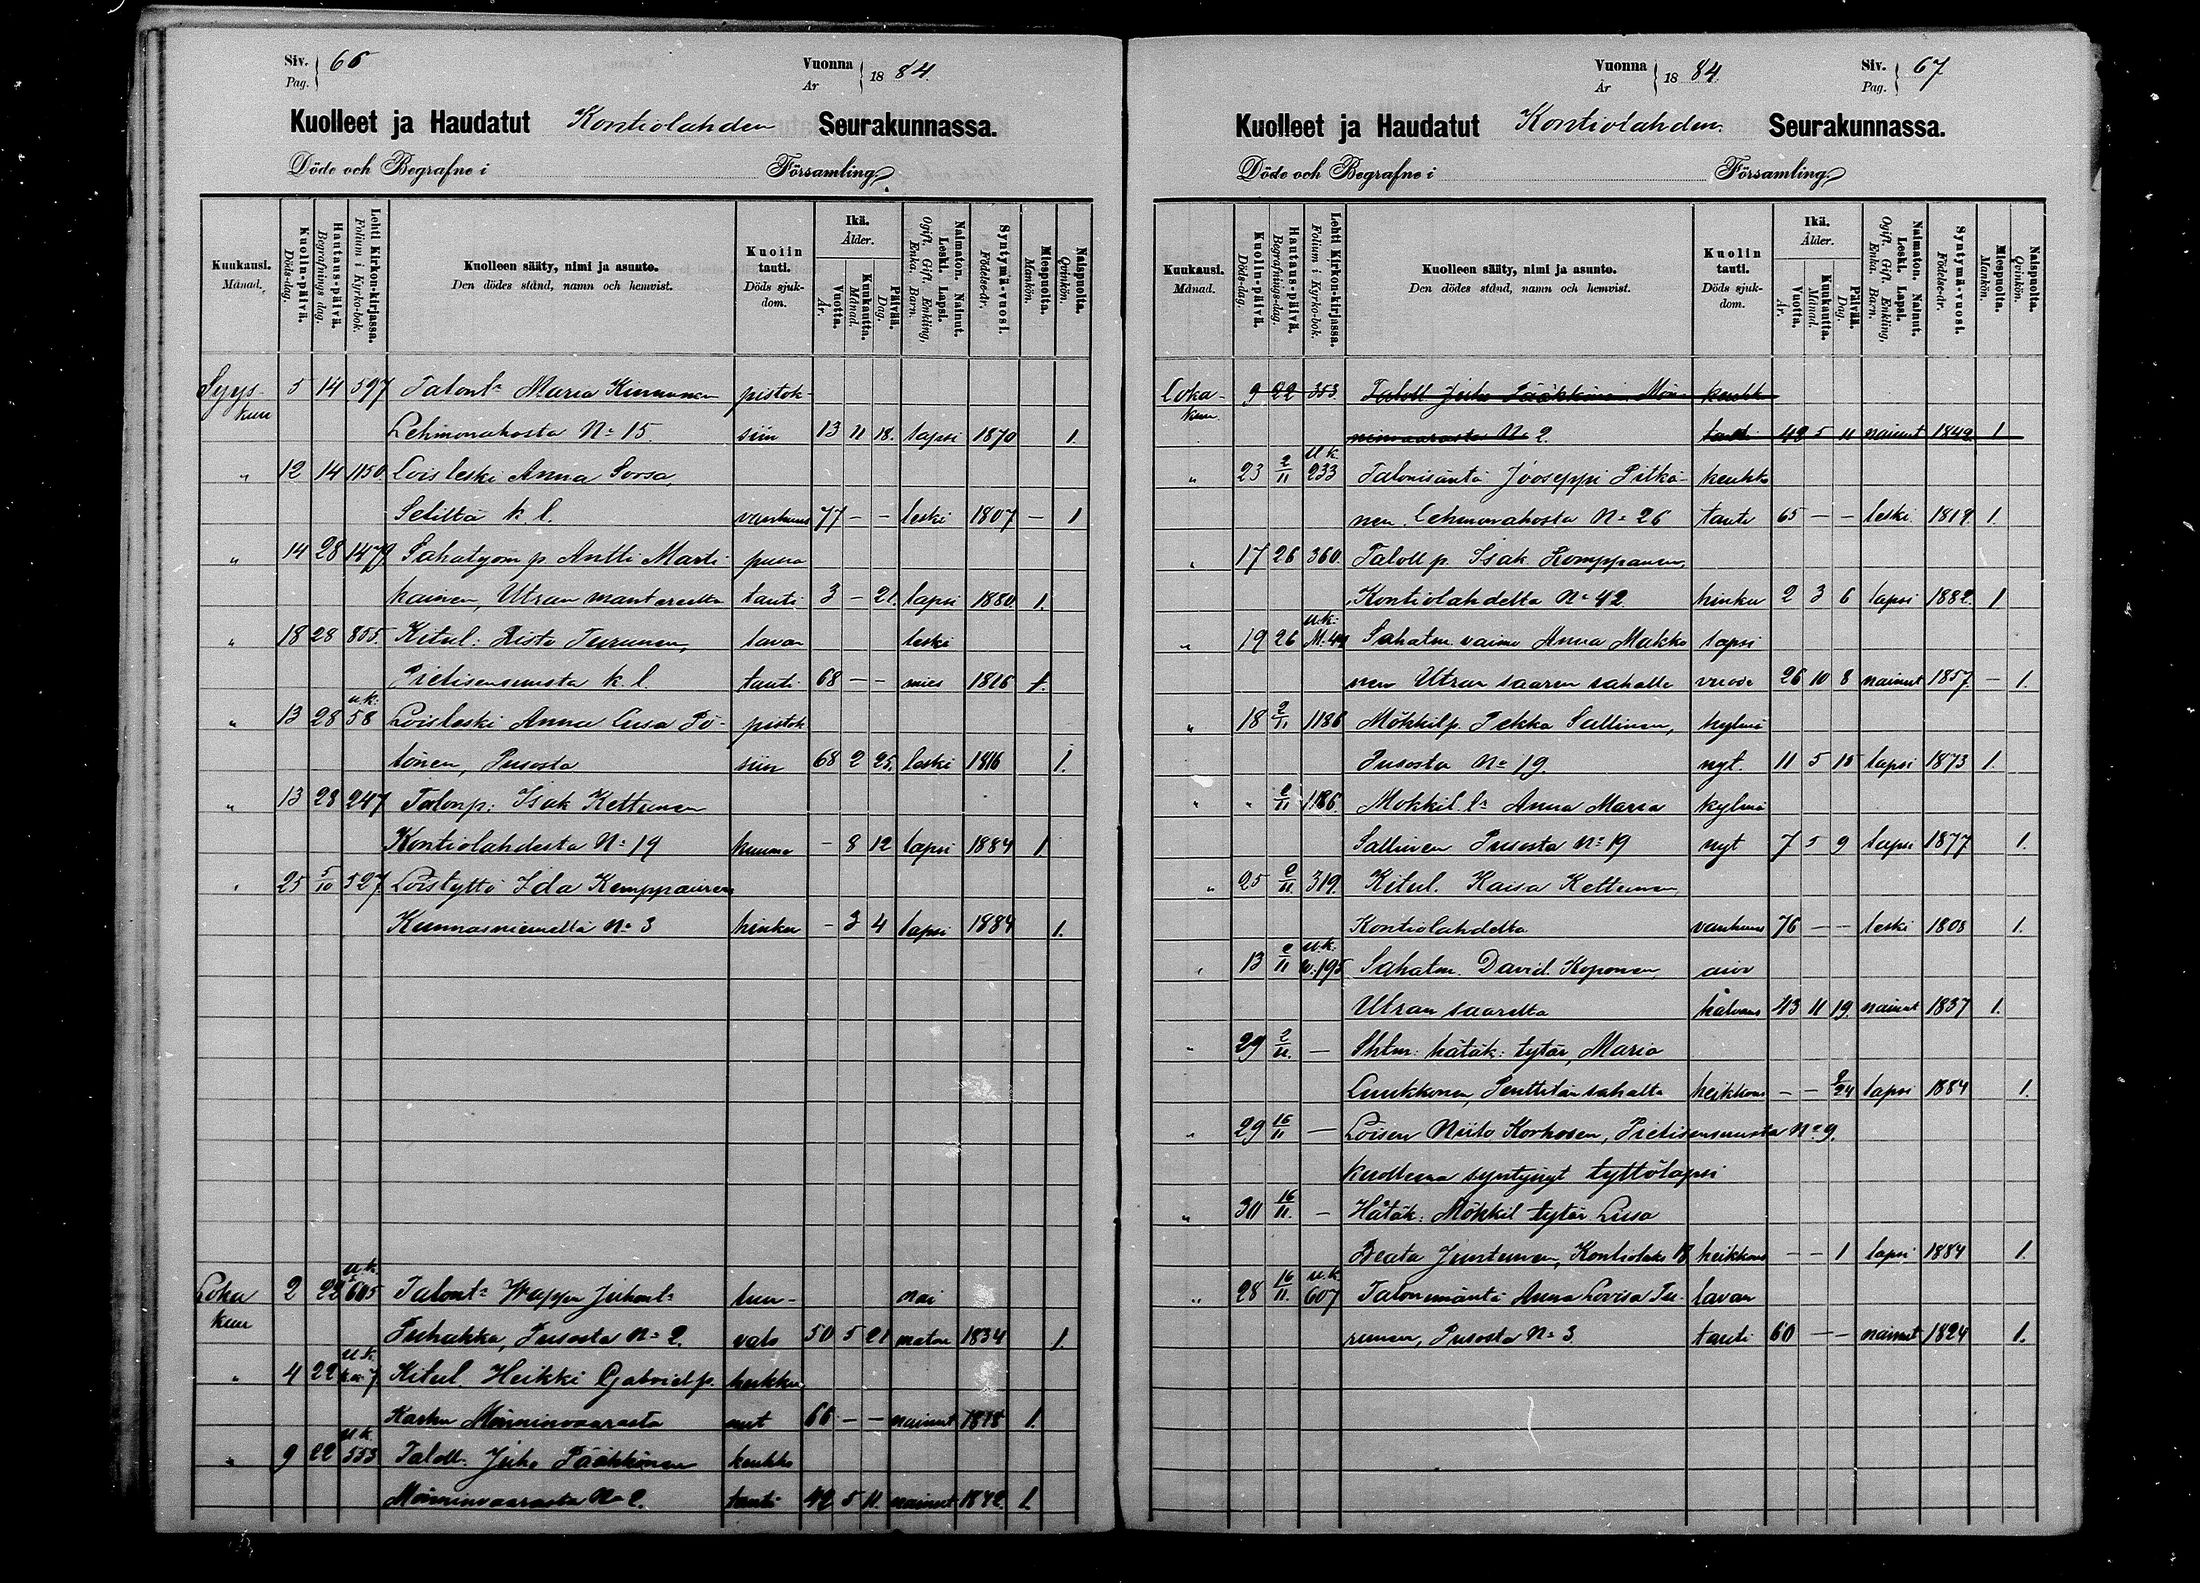 Siv. Pag. 66
Vuonna År 1884.
Kuolleet ja Haudatut Kontiolahden Seurakunnassa.
Döde och Begrafne i Församling.
Kuukausi. Månad.
Kuolin-päivä. Döds-dag.
Hautaus-päivä. Begrafnings dag.
Lehti Kirkon-kirjassa. Folium i Kyrko-bok.
Kuolleen sääty, nimi ja asunto. Den dödes stånd, namn och hemvist.
Kuolin tauti. Döds sjuk-dom.
Ikä. Ålder.
Vuotta. År.
Kuukautta. Månad.
Päivää. Dag.
Naimaton. Nainut. Leski. Lapsi. Ogift. Gift. Enkling, Enka. Barn.
Syntymä-vuosi. Födelse-år.
Miespuolta. Mankön.
Naispuolta. Qvinkön.
Syys- 5 14 597 Talont:r Maria Kinnunen pistok
kuu Lehmonahosta No 15. siin 13 11 18. lapsi 1870 1.
" 12 14 1150 Lois leski Anna Sorsa,
Seliltä k. l. vanhuus 77 – – leski 1807 – 1
" 14 28 1479 Sahatyöm p. Antti Marti
kainen, Utran mantereelta tauti 3 – 21. lapsi 1880 1.
" 18 28 855. Kitul: Risto Turunen, lavan leski
Pielisensuusta k. l. tauti 68 – – mies 1816 1.
u.k.
" 13 28 58 Loisleski Anna Liisa Pö- pistok
tönen, Pusosta siin 68 2 25. leski 1816 1.
" 13 28 247 Talonp: Isak Kettunen
Kontiolahdesta No 19 kuume – 8 12 lapsi 1884 1.
" 25 5/10 527. Loistyttö Ida Kemppainen
Kunnasniemeltä No 3 hinku – 3 4 lapsi 1884 1.
u.k.
Loka 2 22 605 Talont:r Wappu Juhont:r kuu- nai
kuu Puhakka, Pusosta No 2. valo 50 5 21 maton 1834 1.
u.k.
" 4 22 Kitul. Heikki Gabrielp.
Karhu Mönninvaarasta 66 – – nainut 1818 1.
u.k.
" 9 22 353 Taloll: Juho Pääkkönen keuhko
Mönninvaarasta No 2. tauti 42 5 11. nainut 1842 1.
Vuonna År 1884.
Siv. Pag. 67
Kuolleet ja Haudatut Kontiolahden. Seurakunnassa.
Döde och Begrafne i Församling.
Kuukausi. Månad.
Kuolin-päivä. Döds-dag.
Hautaus-päivä. Begrafnings-dag.
Lehti Kirkon-kirjassa. Folium i Kyrko-bok.
Kuolleen sääty, nimi ja asunto. Den dödes stånd, namn och hemvist.
Kuolin tauti. Döds sjuk-dom.
Ikä. Ålder.
Vuotta. År.
Kuukautta. Månad.
Päivää. Dag.
Naimaton. Nainut. Leski. Lapsi. Ogift. Gift. Enkling, Enka. Barn.
Syntymä-vuosi. Födelse-år.
Miespuolta. Mankön.
Naispuolta. Qvinkön.
Loka- 9 22 353 Taloll Juho Pääkkönen Mön- keuhk
kuu ninvaarasta No 2 tauti 42 5 11 nainut 1842 1
u.k.
" 23 2/11 233 Talonisäntä Jooseppi Pitkä- keuhko
nen, Lehmonahosta No 26 tauti 65 – – leski 1819 1.
" 17 26 360. Taloll p. Isak Romppanen,
Kontiolahdelta No 42. hinku 2 3 6 lapsi 1882. 1
u.k.
" 19 26 Sahatm vaimo Anna Makko lapsi
nen Utran saaren sahalta vuode 26 10 8 nainut 1857. – 1.
" 18 2/11 1186 Mökkilp. Pekka Sallinen, kylmä
Pusosta No 19. nyt. 11 5 15 lapsi 1873 1.
" " 2/11 1186. Mökkil. t:r Anna Maria kylmä
Sallinen Pusosta No 19 nyt 7 5 9 lapsi 1877 1.
" 25 2/11. 319. Kitul. Kaisa Kettunen,
Kontiolahdelta vanhuus 76 – – leski 1808 1.
u.k.
" 13 2/11 195 Sahatm. David Koponen, aivo
Utran saarelta halvaus 43 11 19. nainut 1837 1.
" 29 2/11. – Shtm: hätäk: tytär, Maria
Luukkonen, Penttilän sahalta heikkous – – lapsi 1884 1.
" 29 16/11 – Loisen Niilo Korhosen, Pielisensuusta No 9.
kuolleena syntynyt tyttölapsi
" 30 16/11. – Hätäk: Mökkil tytär Liisa
Beata Juntunen, Kontiolaks 18 heikkous – – 1 lapsi 1884 1.
u.k.
" 28 16/11. 607 Talonemäntä Anna Lovisa Tu- lavan
runen, Pusosta No 3. tauti 60 – – nainut 1824 1.